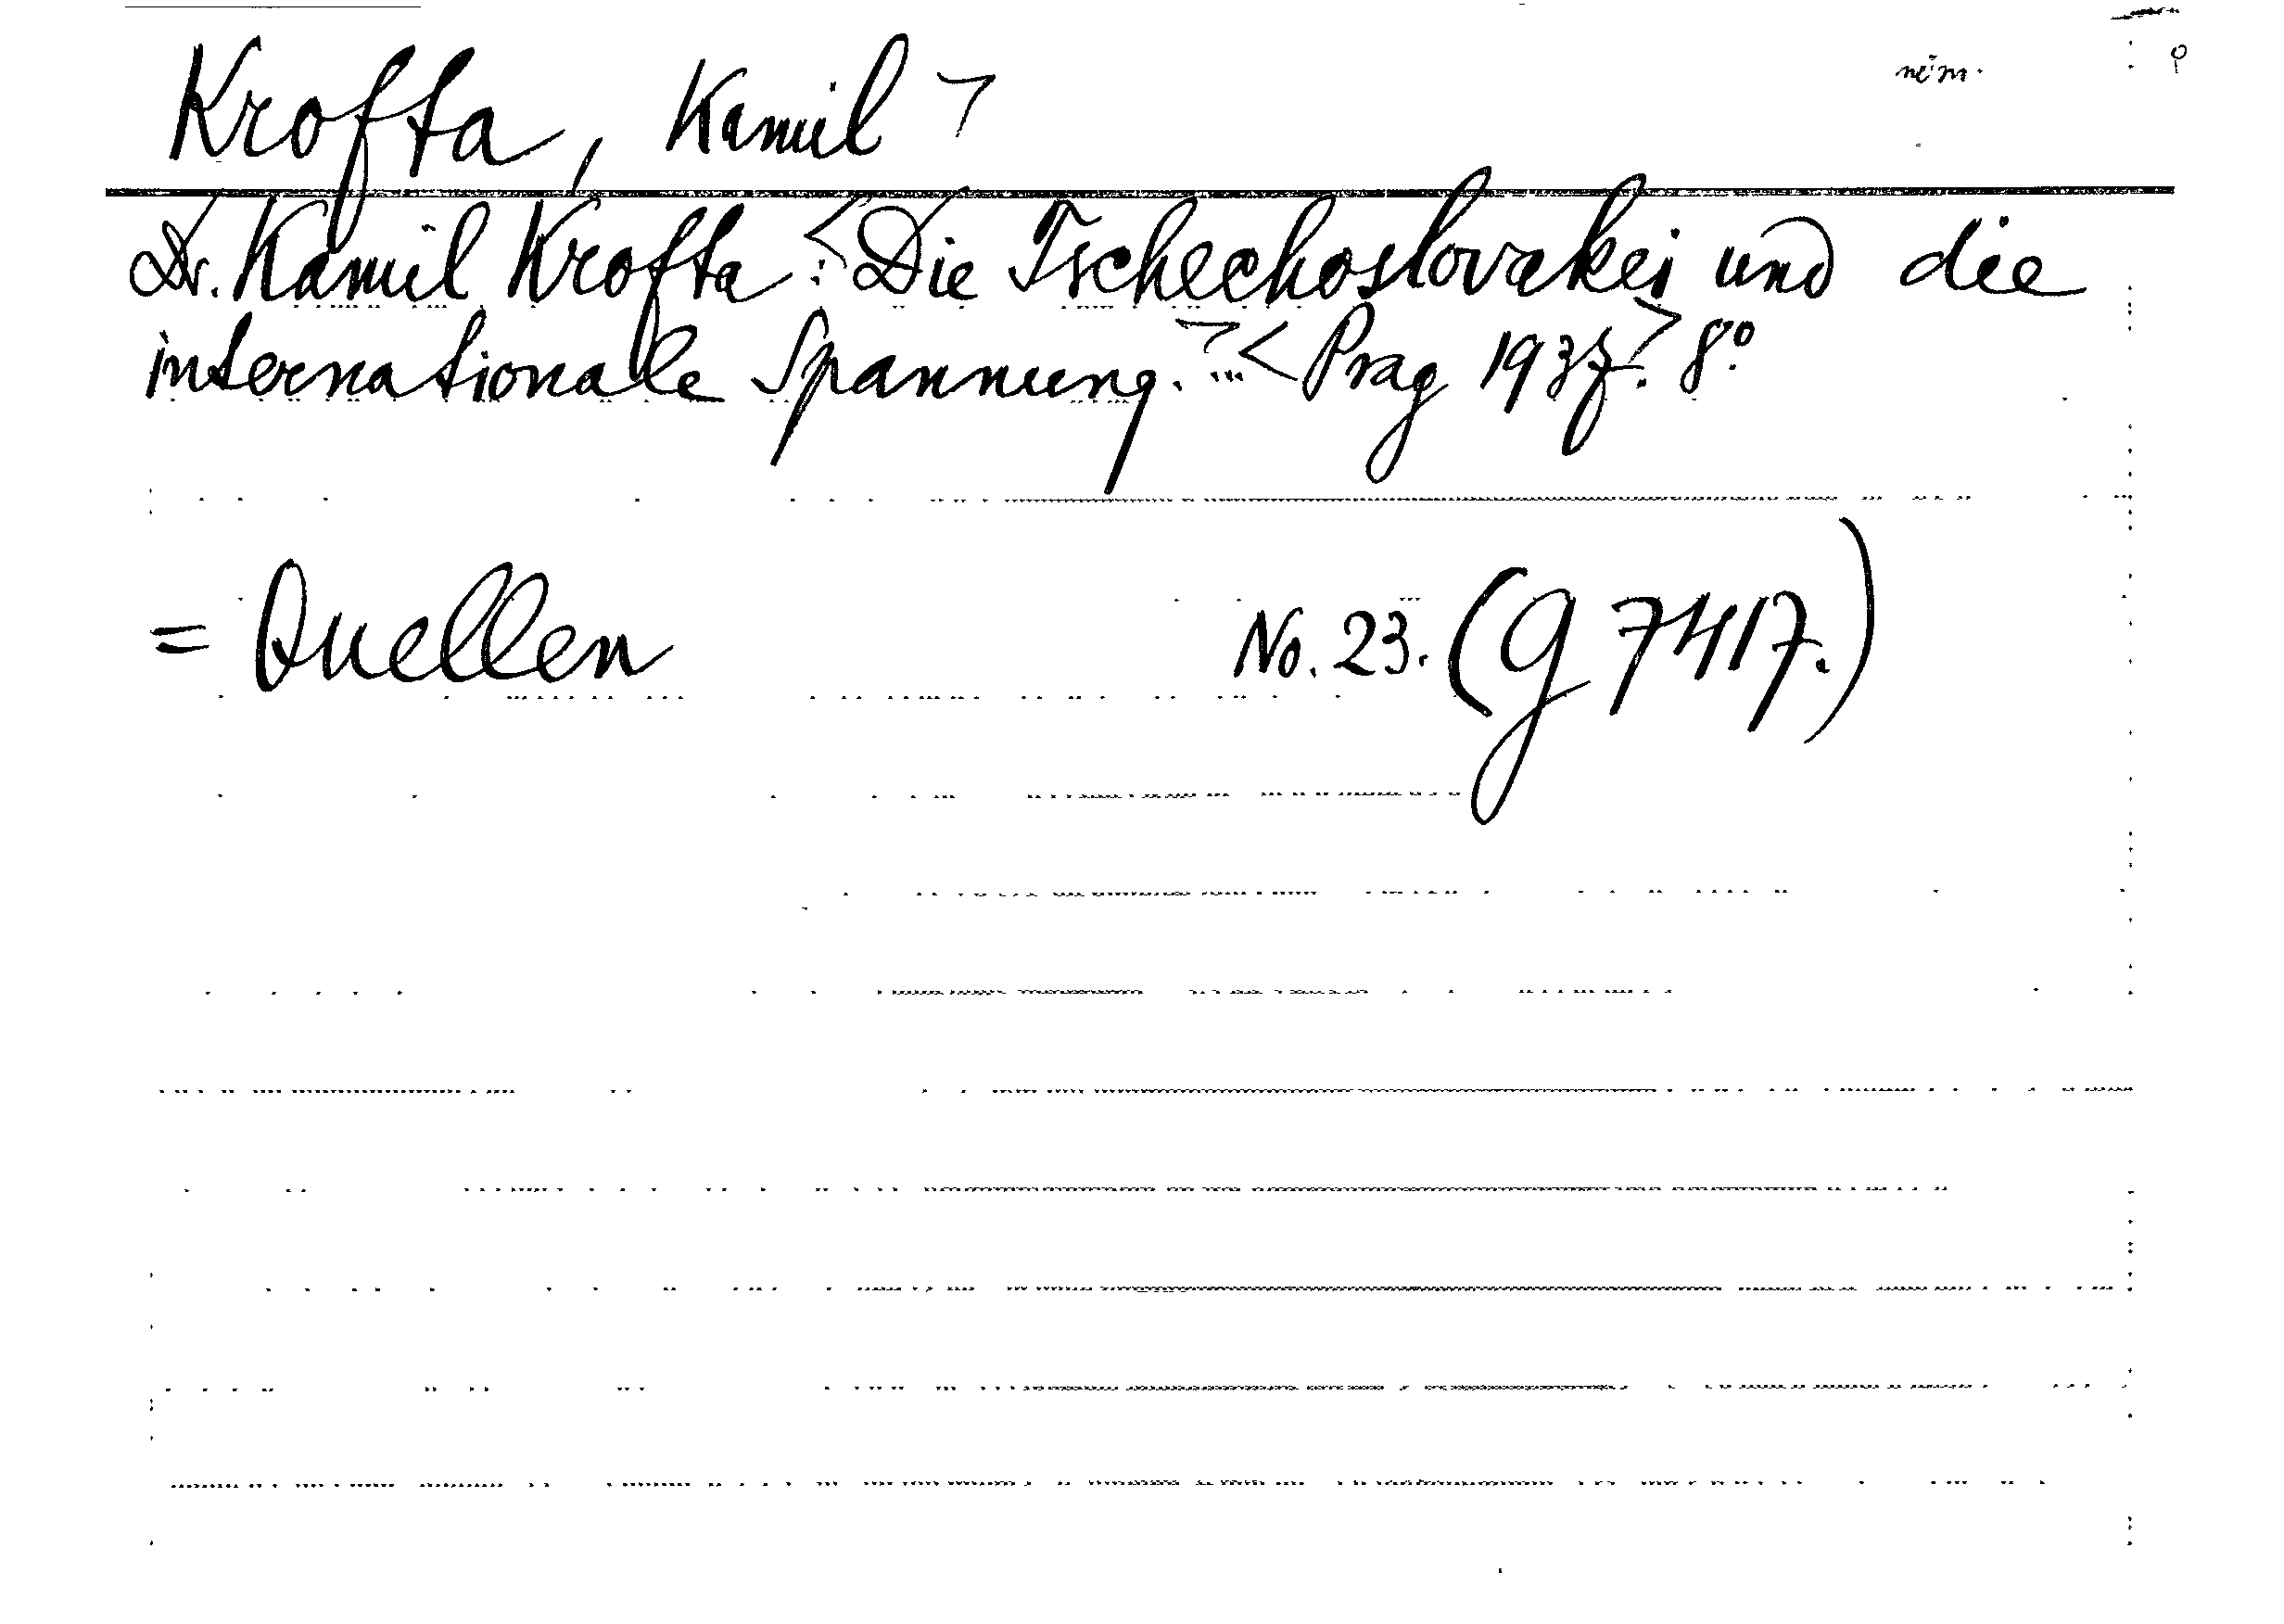 Krofta, Kamil > něm.
Dr. Kamil Krofta: <Die Tschechoslovakei und die
internationale Spannung.> <Prag 1937.> 8°
= Quellen No. 23. (g 7417.)